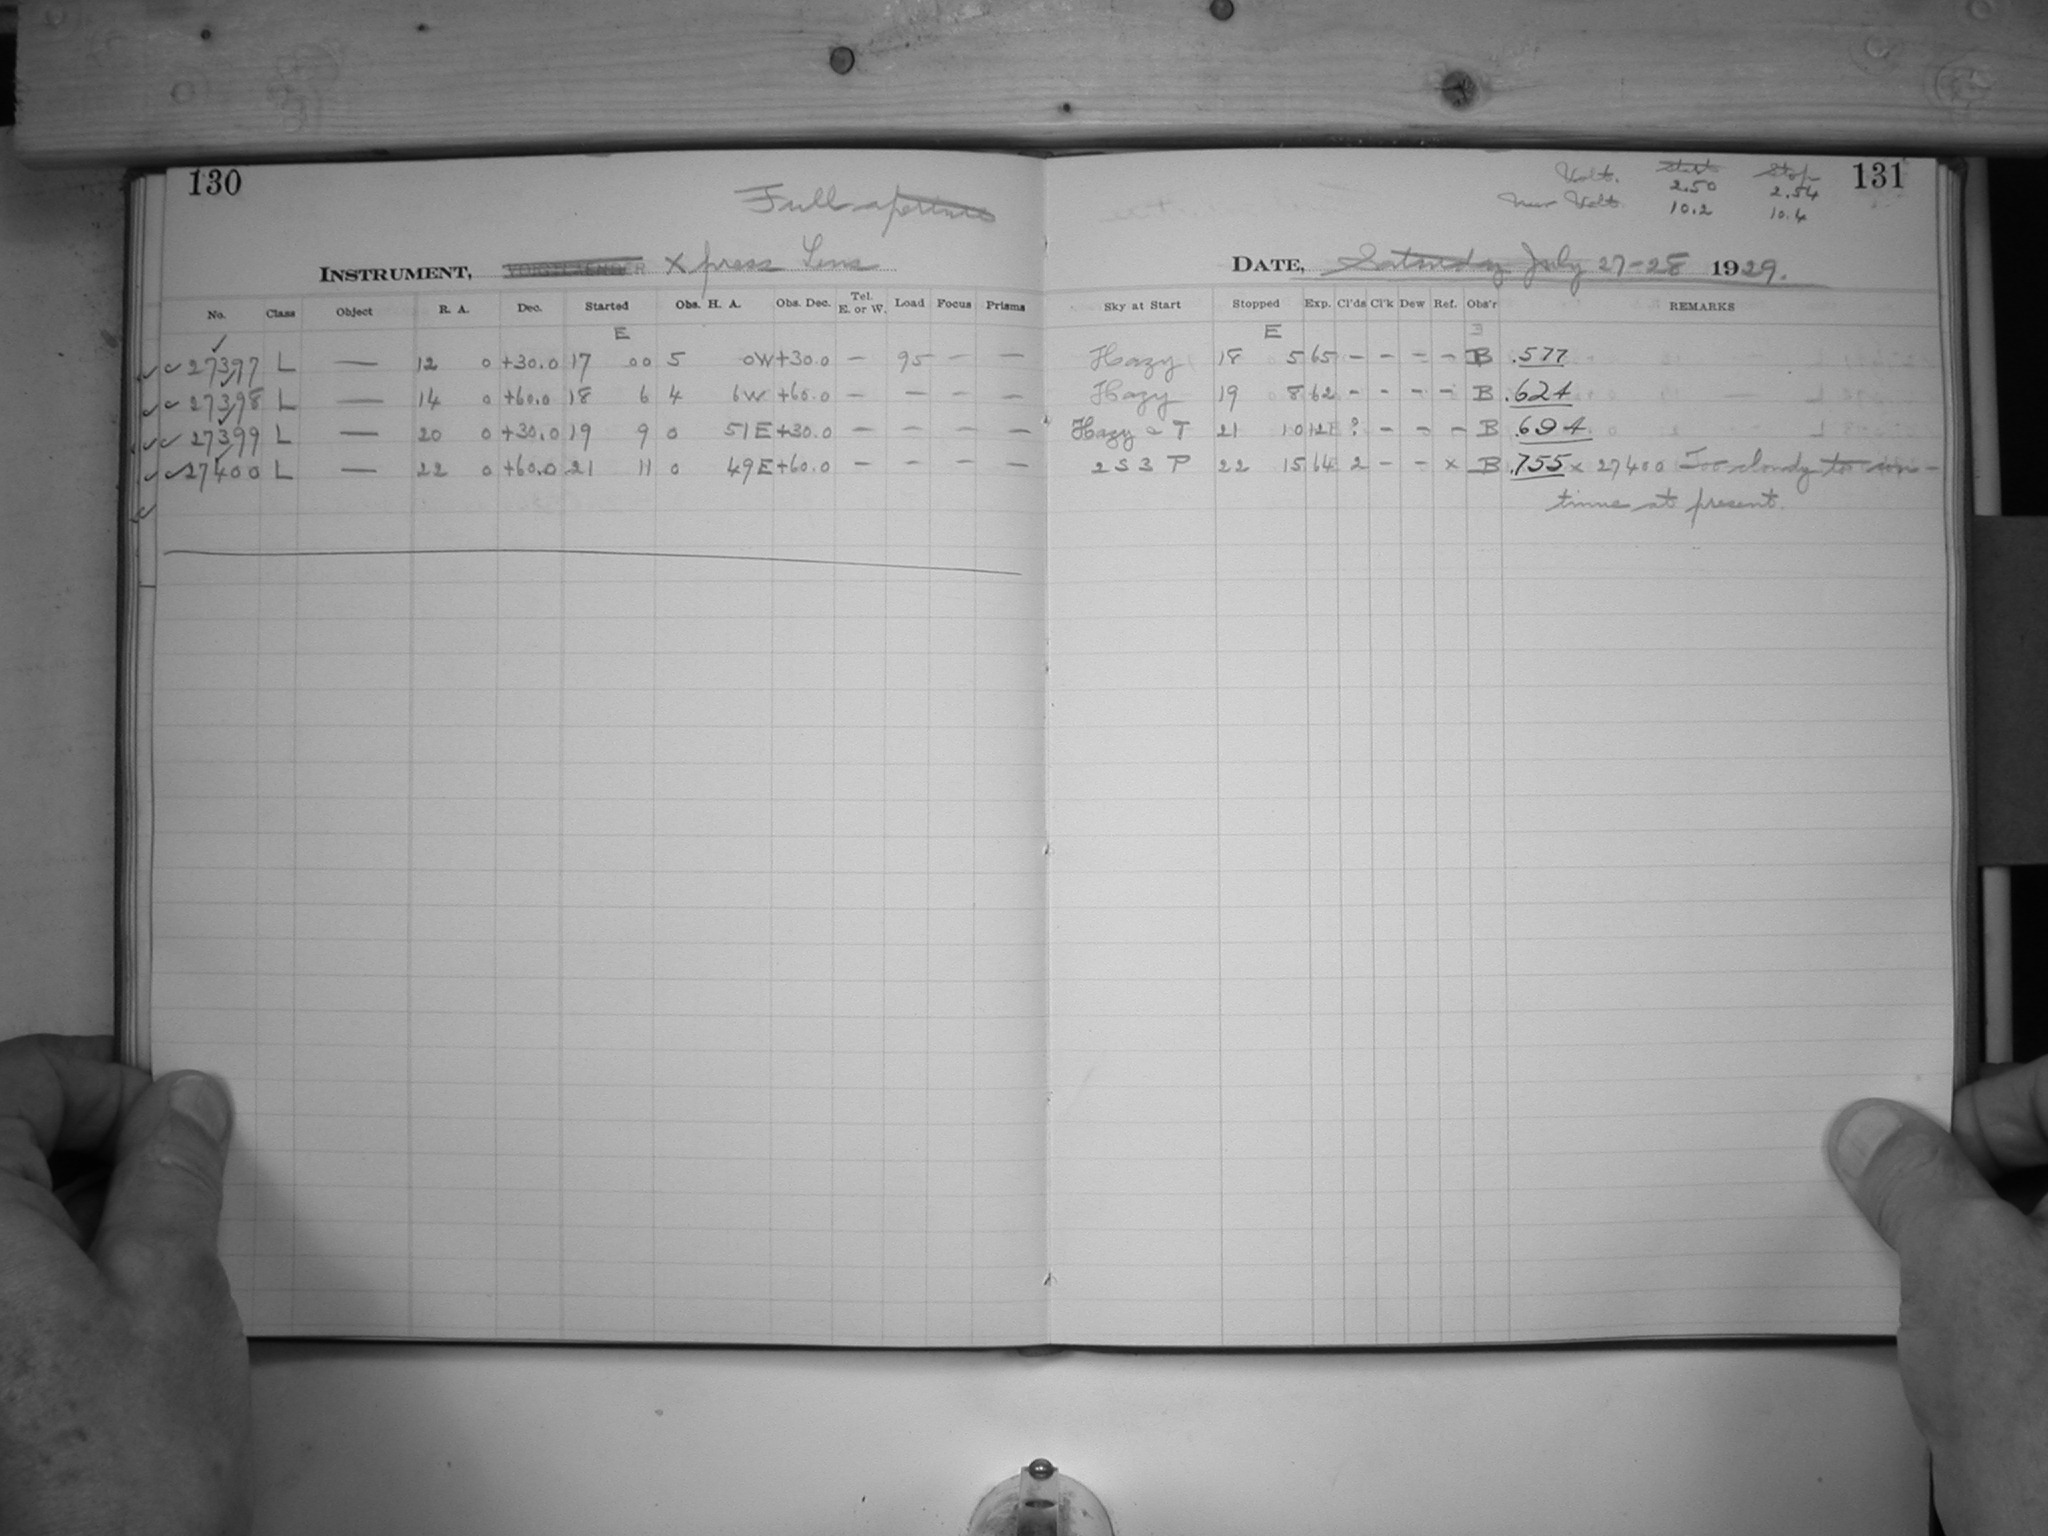 130
Full aperture
INSTRUMENT, VOIGTLAENDER Xpress Lens
No. Class Object R. A. Dec. Started Obs. H. A. Obs. Dec. Tel. E. or W. Load Focus Prisms
E
27397 L — 12 0 +30.0 17 00 5 0W +30.0 — 95 — —
27398 L — 14 0 +60.0 18 6 4 6W +60.0 — — — —
27399 L — 20 0 +30.0 19 9 0 51E +30.0 — — — —
27400 L — 22 0 +60.0 21 11 0 49E +60.0 — — — —
131
Volt. Start Stop
2.50 2.54
New Volt. 10.2 10.4
DATE, Saturday July 27-28 1929.
Sky at Start Stopped Exp. Cl'ds Cl'k Dew Ref. Obs'r REMARKS
E
Hazy 18 5 65 - - - - B .577
Hazy 19 8 62 - - - - B .624
Hazy & T 21 10 121 ? - - - B .694
2 S 3 P 22 15 64 2 - - x B .755 x 27400 Too cloudy to con-
tinue at present.